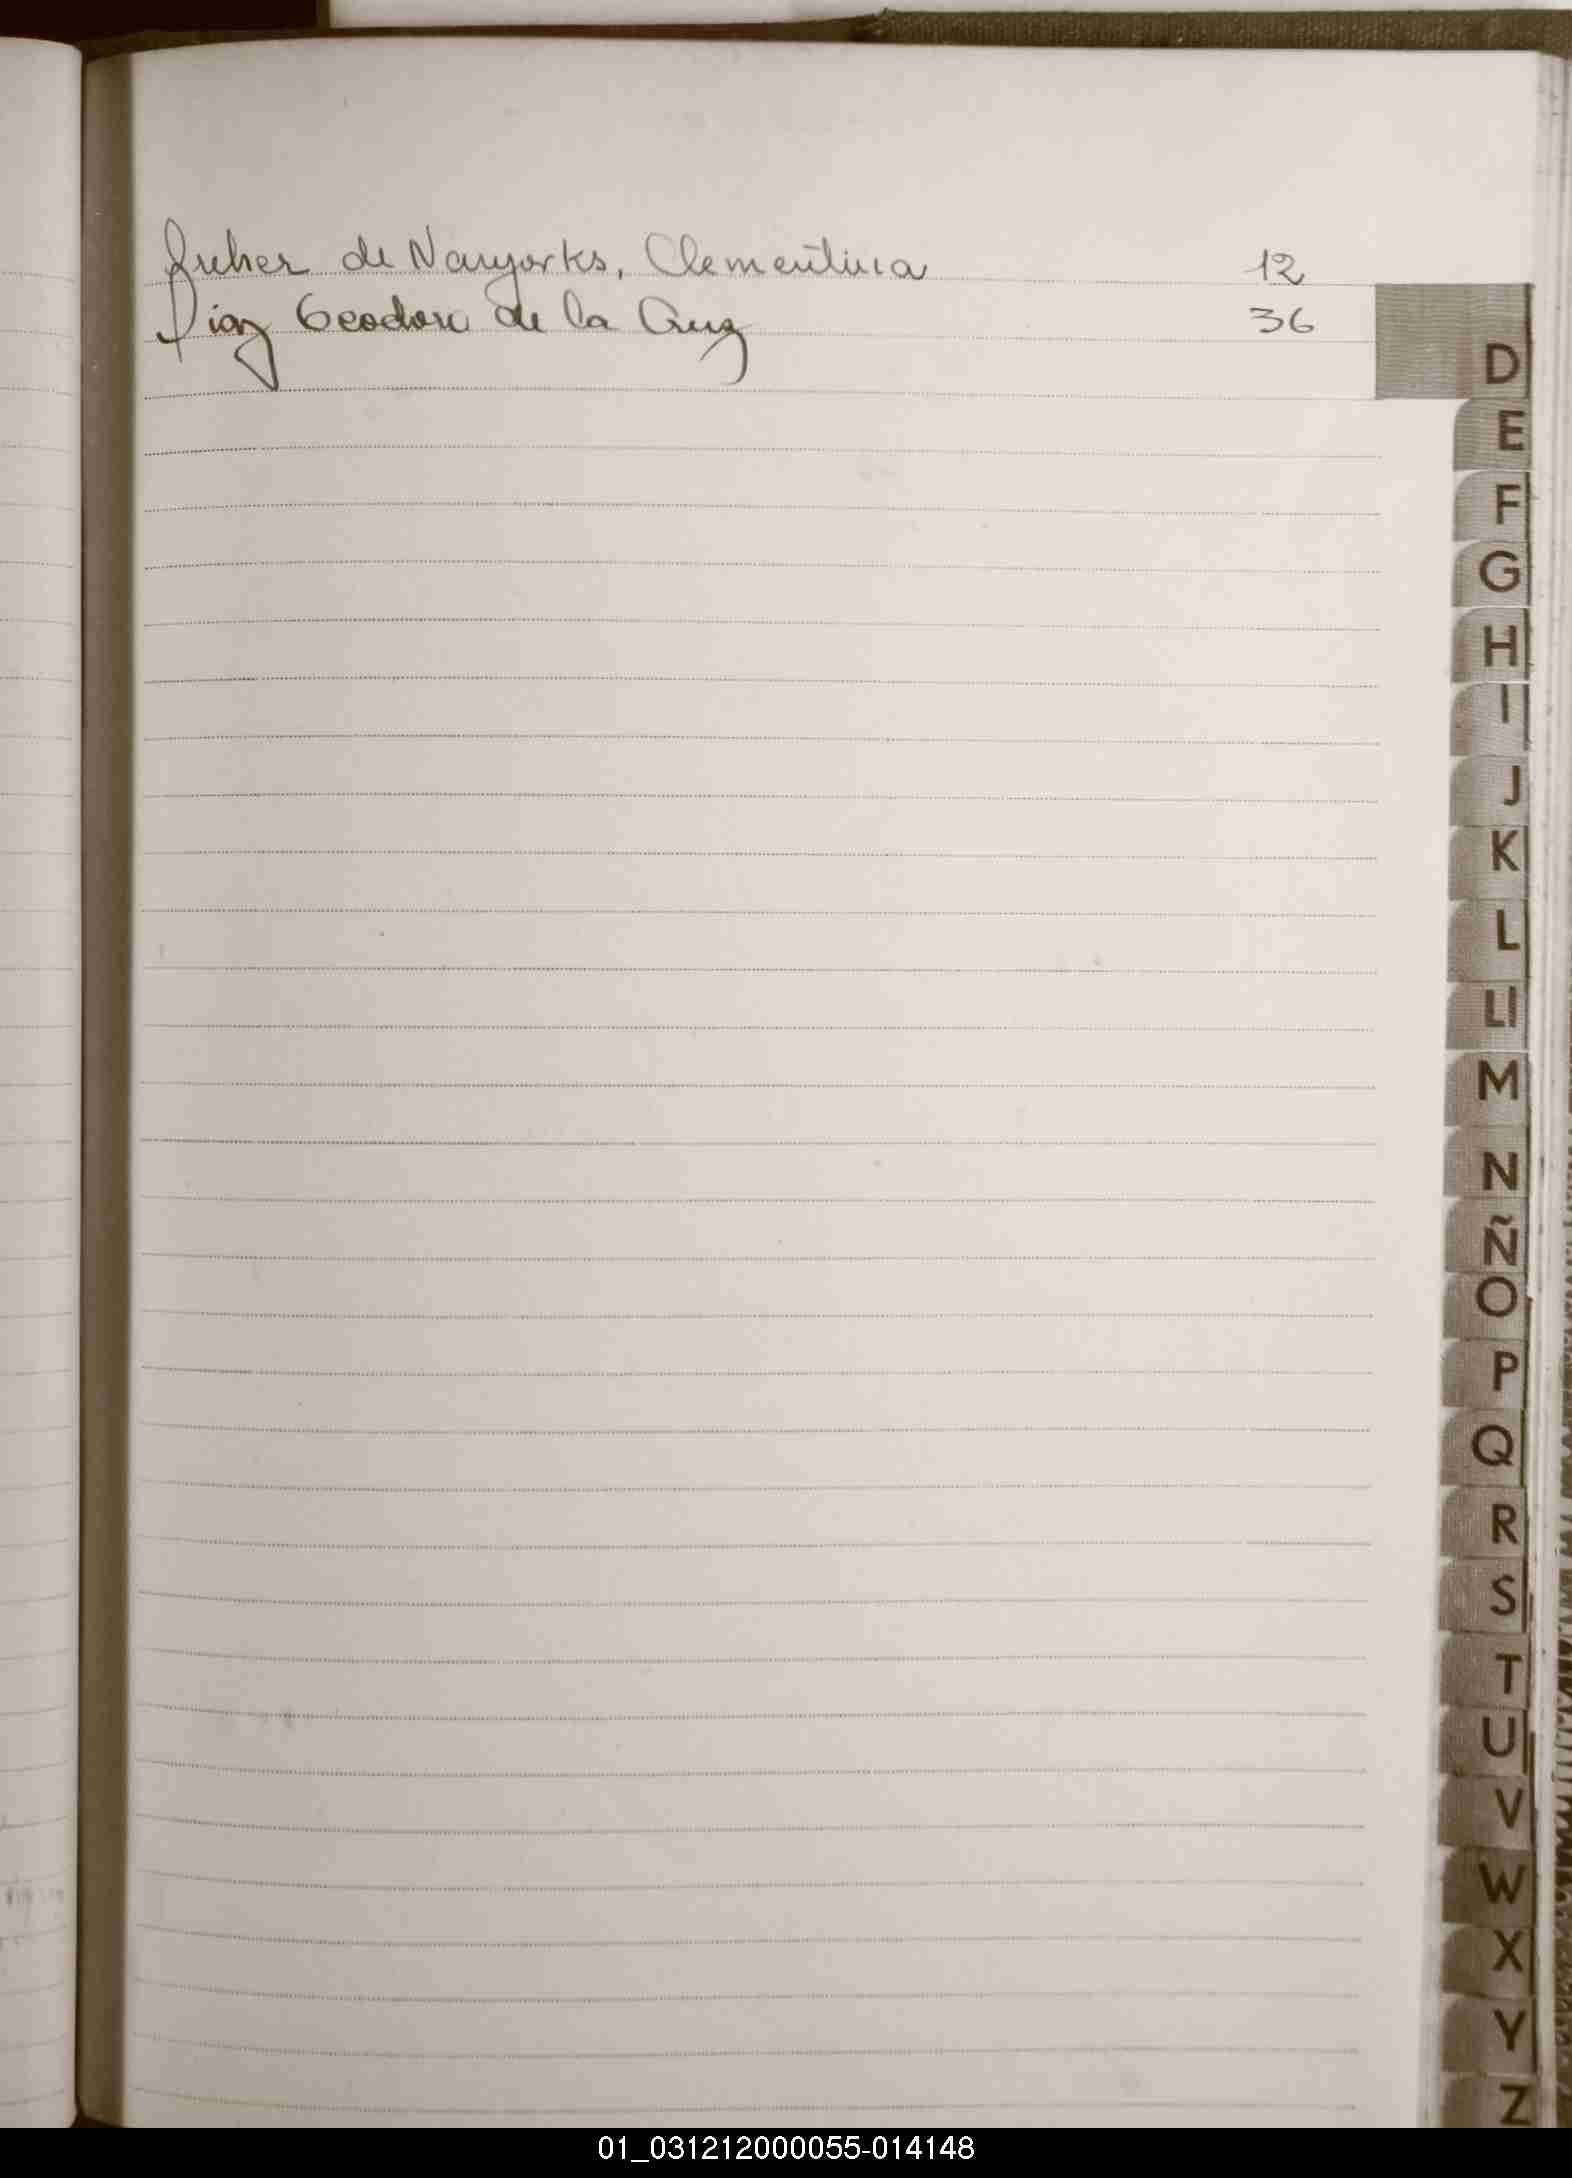 de Nayorks, Clementina 12
Diaz Teodoro de la Cruz 36
D
E
F
G
H
I
J
K
L
Ll
M
N
Ñ
O
P
Q
R
S
T
U
V
W
X
Y
Z
01_031212000055-014148